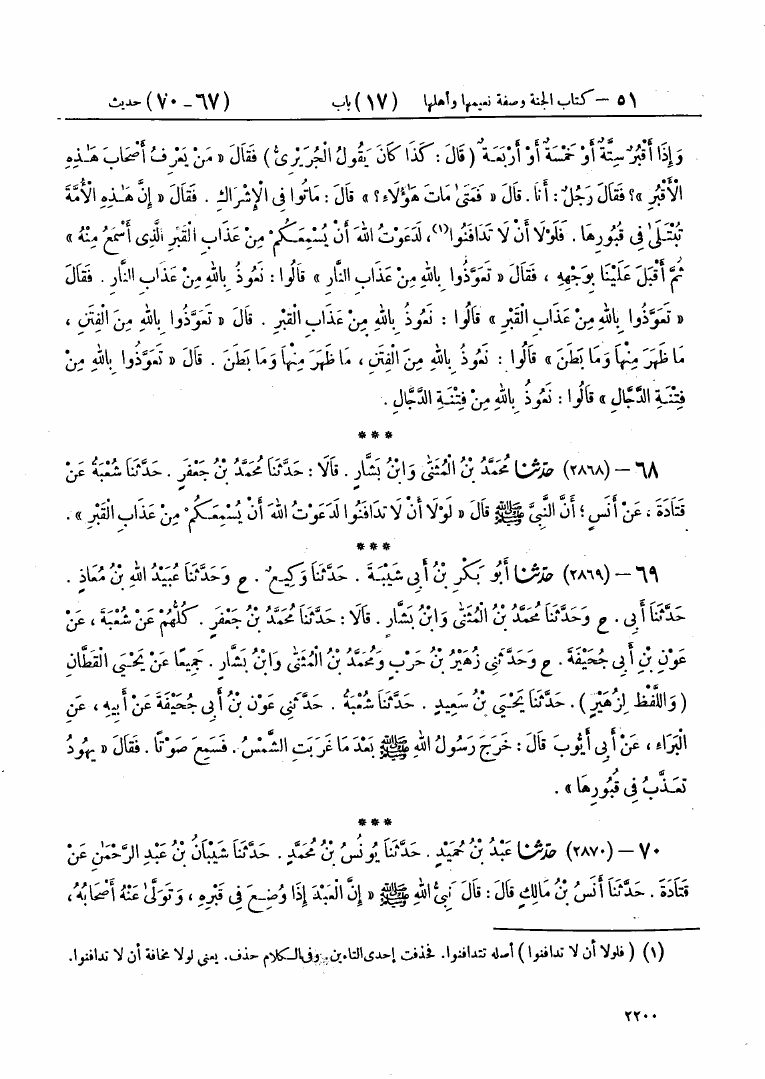 ٥١ – كتاب الجنة وصفة نعيمها وأهلها (١٧) باب (٦٧-٧٠) حديث
وَإِذَا أَقْبُرٌ سِتَّةٌ أَوْ خَمْسَةٌ أَوْ أَرْبَعَةٌ (قَالَ: كَذَا كَانَ يَقُولُ الْجُرَيْرِىُّ) فَقَالَ « مَنْ يَعْرِفُ أَصْحَابَ هَٰذِهِ
الْأَقْبُرِ »؟ فَقَالَ رَجُلٌ: أَنَا. قَالَ « فَمَتَىٰ مَاتَ هَٰؤُلَاءِ؟ » قَالَ: مَاتُوا فِى الْإِشْرَاكِ. فَقَالَ « إِنَّ هَٰذِهِ الْأُمَّةَ
تُبْتَلَىٰ فِى قُبُورِهَا. فَلَوْلَا أَنْ لَا تَدَافَنُوا(١)، لَدَعَوْتُ اللهَ أَنْ يُسْمِعَكُمْ مِنْ عَذَابِ الْقَبْرِ الَّذِى أَسْمَعُ مِنْهُ »
ثُمَّ أَقْبَلَ عَلَيْنَا بِوَجْهِهِ، فَقَالَ « تَعَوَّذُوا بِاللهِ مِنْ عَذَابِ النَّارِ » قَالُوا: نَعُوذُ بِاللهِ مِنْ عَذَابِ النَّارِ. فَقَالَ
« تَعَوَّذُوا بِاللهِ مِنْ عَذَابِ الْقَبْرِ » قَالُوا: نَعُوذُ بِاللهِ مِنْ عَذَابِ الْقَبْرِ. قَالَ « تَعَوَّذُوا بِاللهِ مِنَ الْفِتَنِ،
مَا ظَهَرَ مِنْهَا وَمَا بَطَنَ » قَالُوا: نَعُوذُ بِاللهِ مِنَ الْفِتَنِ، مَا ظَهَرَ مِنْهَا وَمَا بَطَنَ. قَالَ « تَعَوَّذُوا بِاللهِ مِنْ
فِتْنَةِ الدَّجَّالِ » قَالُوا: نَعُوذُ بِاللهِ مِنْ فِتْنَةِ الدَّجَّالِ.
***
٦٨ – (٢٨٦٨) حَدَّثَنَا مُحَمَّدُ بْنُ الْمُثَنَّىٰ وَابْنُ بَشَّارٍ. قَالَا: حَدَّثَنَا مُحَمَّدُ بْنُ جَعْفَرٍ. حَدَّثَنَا شُعْبَةُ عَنْ
قَتَادَةَ، عَنْ أَنَسٍ؛ أَنَّ النَّبِىَّ ﷺ قَالَ « لَوْلَا أَنْ لَا تَدَافَنُوا لَدَعَوْتُ اللهَ أَنْ يُسْمِعَكُمْ مِنْ عَذَابِ الْقَبْرِ ».
***
٦٩ – (٢٨٦٩) حَدَّثَنَا أَبُو بَكْرِ بْنُ أَبِى شَيْبَةَ. حَدَّثَنَا وَكِيعٌ. ح وَحَدَّثَنَا عُبَيْدُ اللهِ بْنُ مُعَاذٍ.
حَدَّثَنَا أَبِى. ح وَحَدَّثَنَا مُحَمَّدُ بْنُ الْمُثَنَّىٰ وَابْنُ بَشَّارٍ. قَالَا: حَدَّثَنَا مُحَمَّدُ بْنُ جَعْفَرٍ. كُلُّهُمْ عَنْ شُعْبَةَ، عَنْ
عَوْنِ بْنِ أَبِى جُحَيْفَةَ. ح وَحَدَّثَنِى زُهَيْرُ بْنُ حَرْبٍ وَمُحَمَّدُ بْنُ الْمُثَنَّىٰ وَابْنُ بَشَّارٍ. جَمِيعًا عَنْ يَحْيَى الْقَطَّانِ
(وَاللَّفْظُ لِزُهَيْرٍ). حَدَّثَنَا يَحْيَىٰ بْنُ سَعِيدٍ. حَدَّثَنَا شُعْبَةُ. حَدَّثَنِى عَوْنُ بْنُ أَبِى جُحَيْفَةَ عَنْ أَبِيهِ، عَنِ
الْبَرَاءِ، عَنْ أَبِى أَيُّوبَ قَالَ: خَرَجَ رَسُولُ اللهِ ﷺ بَعْدَ مَا غَرَبَتِ الشَّمْسُ. فَسَمِعَ صَوْتًا. فَقَالَ « يَهُودُ
تُعَذَّبُ فِى قُبُورِهَا ».
***
٧٠ – (٢٨٧٠) حَدَّثَنَا عَبْدُ بْنُ حُمَيْدٍ. حَدَّثَنَا يُونُسُ بْنُ مُحَمَّدٍ. حَدَّثَنَا شَيْبَانُ بْنُ عَبْدِ الرَّحْمَٰنِ عَنْ
قَتَادَةَ. حَدَّثَنَا أَنَسُ بْنُ مَالِكٍ قَالَ: قَالَ نَبِىُّ اللهِ ﷺ « إِنَّ الْعَبْدَ إِذَا وُضِعَ فِى قَبْرِهِ، وَتَوَلَّىٰ عَنْهُ أَصْحَابُهُ،
(١) (فلولا أن لا تدافنوا) أصله تتدافنوا. فحذفت إحدى التاءين. وفى الكلام حذف. يعنى لولا مخافة أن لا تدافنوا.
٢٢٠٠